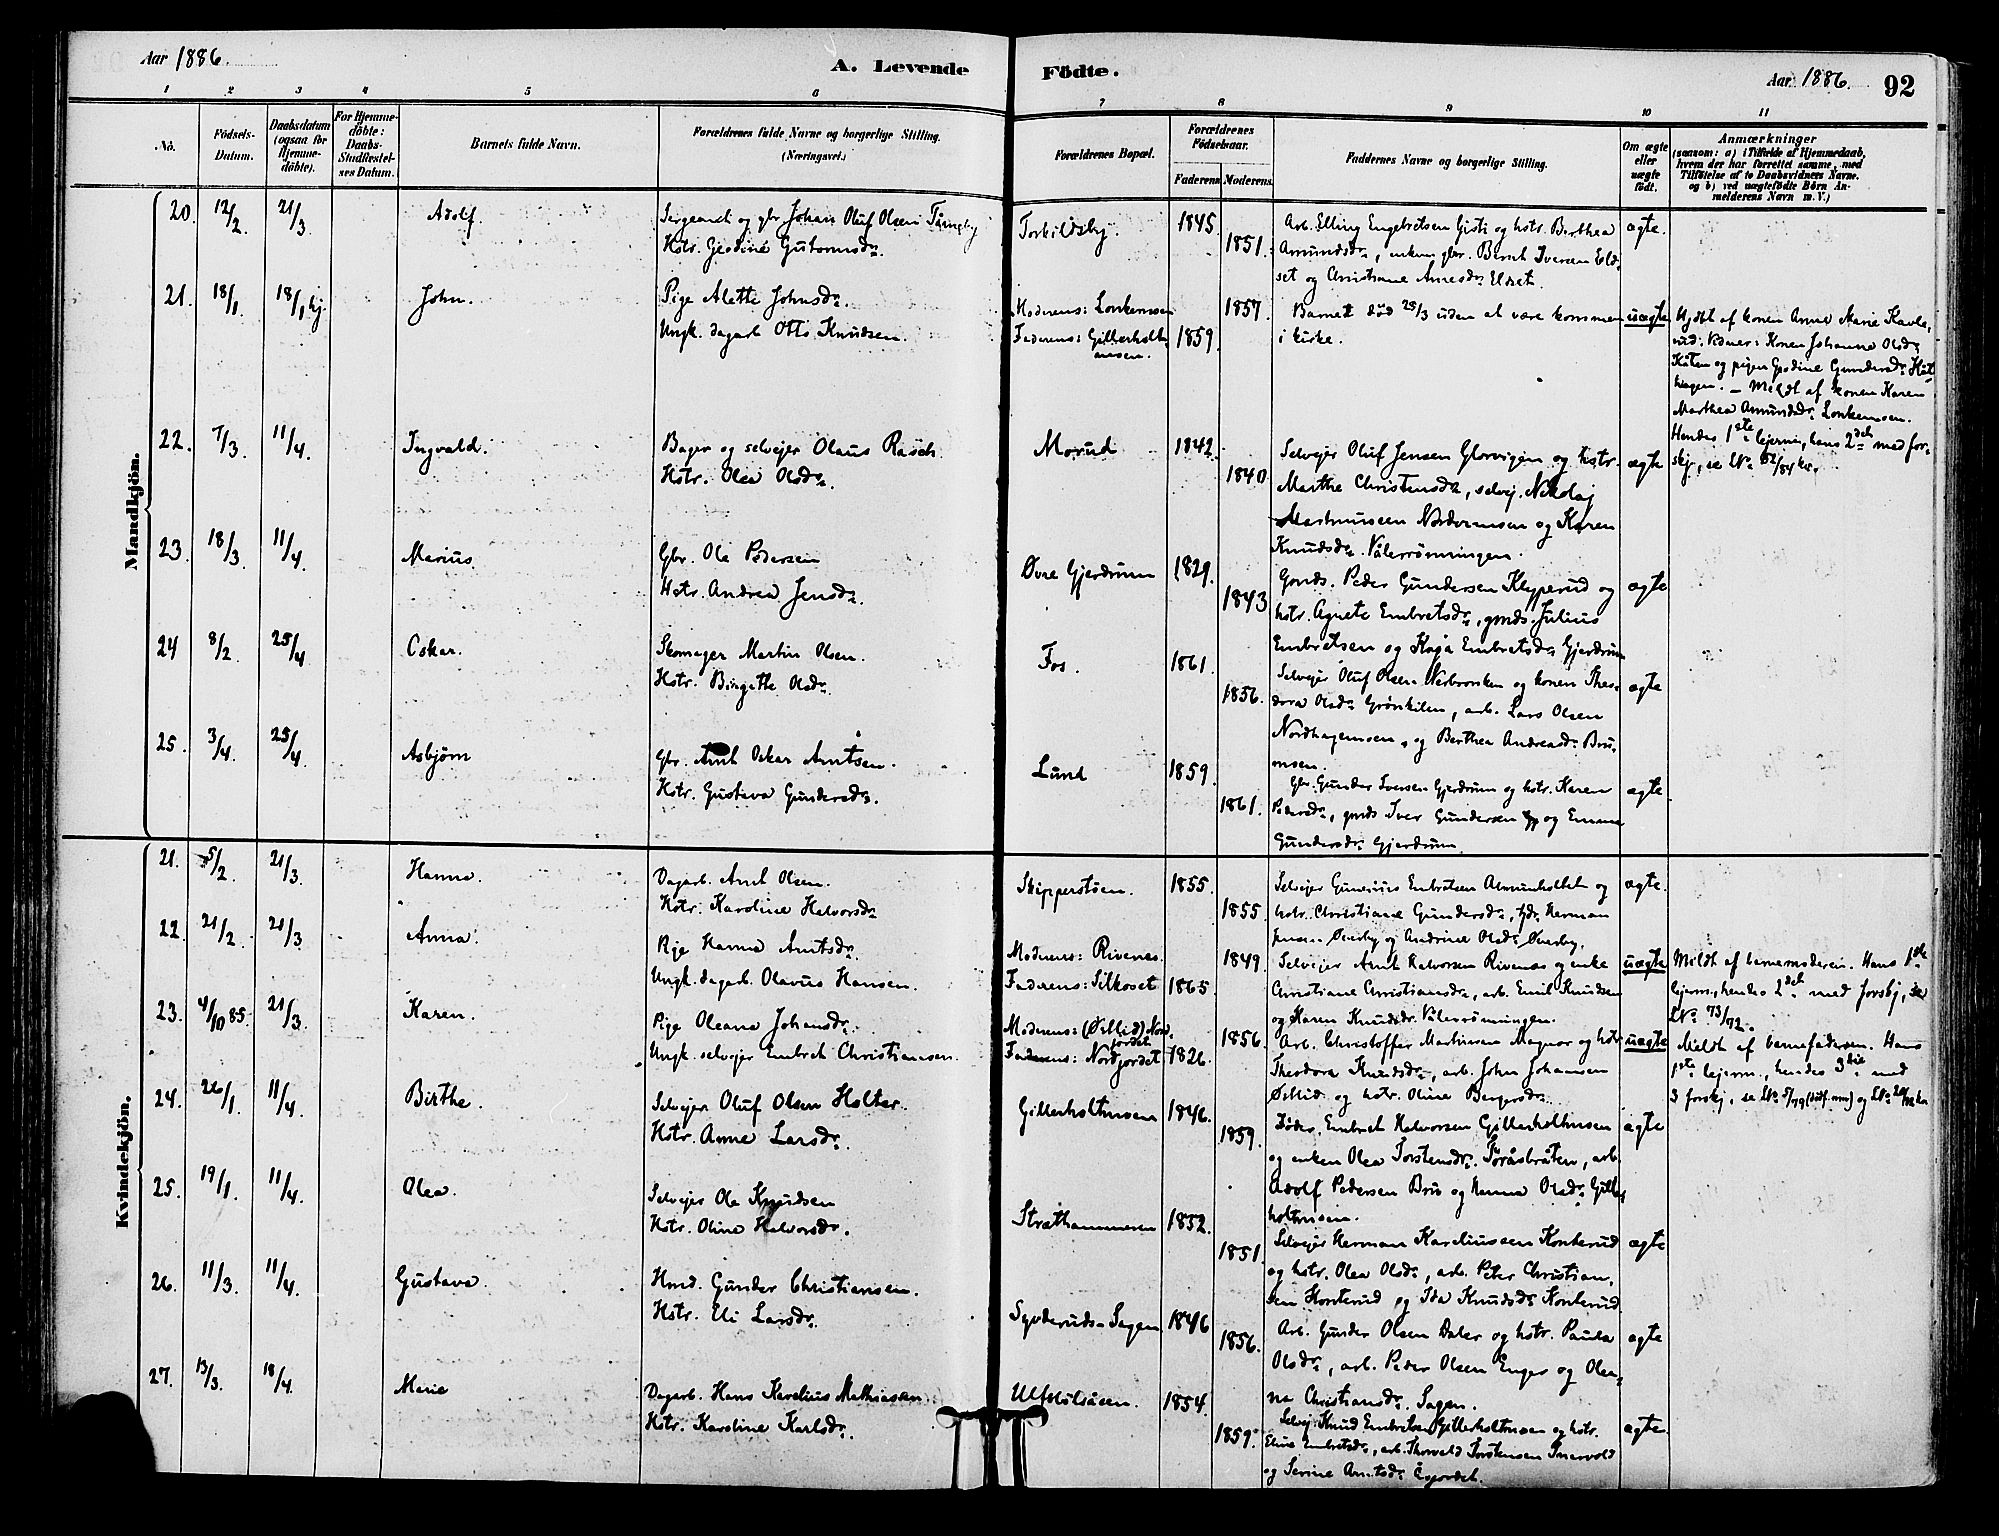 Aar 1886.
A. Levende Födte.
Aar 1886. 92
1 2 3 4 5 6 7 8 9 10 11
No.
Födsels-Datum.
Daabsdatum (ogsaa for Hjemme-döbte).
For Hjemme-döbte: Daabs-Stadfæstel-ses Datum.
Barnets fulde Navn.
Forældrenes fulde Navne og borgerlige Stilling. (Næringsvei.)
Forældrenes Bopæl.
Forældrenes Födselsaar.
Faderens. Moderens.
Faddernes Navne og borgerlige Stilling.
Om ægte eller uægte født.
Anmærkninger
(saasom: a) i Tilfælde af Hjemmedaab,
hvem der har forrettet samme, med
Tilföielse af to Daabsvidners Navne.
og b) ved uægtefödte Börn An-
melderens Navn m. V.)
Mandkjön.
20. 12/2 21/3 Adolf.
Sergeant og gbr Johan Oluf Olsen
Hstr. Gustine Guttormsdr.
Torkildsby. 1845. 1851.
Arb. Elling Engebretsen Gisti og hstr. Berthea
Amundsdr, enkem gbr. Bernt Iversen Eld-
set og Christiane Arnesdr Elset.
ægte.
21. 18/1 18/1 hj. John.
Pige Alette Johnsdr.
Ungk. dagarb. Otto Knudsen.
Moderens: Lonkemoen
Faderens: Gillerholt-
moen.
1859. 1857.
Barnet død 25/3 uden at være kommen
i kirke.
uægte
Hjdbt af konen Anne Marie
Vidner: Konen Johanne Olsdr
og pigen Gundersdr
hagen. – Meldt af konen Karen
Marthea Amundsdr. Lonkemoen.
Hendes 1ste lejerm., hans 2det med for-
skj, se No 52/84 kv.
22. 7/3 11/4 Ingvald.
Bager og selvejer Olaus Rasch.
Hstr. Olea Olsdr.
Morud 1842. 1840.
Selvejer Oluf Jensen Glorvigen og hstr.
Marthe Christensdr, selvej. Nikolaj
Martinussen Nordermoen og Karen
Knudsdr. Vålerrønningen.
ægte
23. 18/3 11/4 Marius.
Gbr. Ole Pedersen
Hstr. Andrea Jensdr.
Øvre Gjerdrum 1829. 1843
Gmds. Peder Gundersen Klypperud og
hstr. Agnete Embretsdr, gmds. Julius
Embretsen og Kaja Embretsdr Gjerdrum
ægte
24 8/2 25/4 Oskar.
Skomager Martin Olsen.
Hstr. Birgitte Olsdr.
Fos. 1861. 1856.
Selvejer Oluf Olsen og konen Theo-
dora Olsdr Grønkilen, arb. Lars Olsen
Nordhagemoen, og Berthea Andreasdr. Bru-
moen.
ægte
25. 3/4 25/4 Asbjørn
Gbr. Arnt Oskar Arntsen.
Hstr. Gustava Gundersdr.
Lund 1859. 1861.
Gbr. Gunder Iversen Gjerdrum og hstr. Karen
Pedersdr, gmds Iver Gundersen og Emma
Gundersdr. Gjerdrum.
ægte
Kvindekjön.
21. 5/2 21/3 Hanna.
Dagarb. Arnt Olsen.
Hstr. Karoline Halvorsdr
Skipperstøen. 1855. 1855.
Selvejer Gunerius Embretsen Almunholtet og
hstr. Christiane Gundersdr, Herman
Øverby og Andrine Olsdr Øverby.
ægte.
22. 21/2 21/3 Anna.
Pige Hanna Arntsdr.
Ungk. dagarb. Olavus Hansen.
Moderens: Rivenes.
Faderens: Silkoset 1865. 1849.
Selvejer Arnt Halvorsen Rivenes og enke
Christiane Christiansdr, arb. Emil Knudsen
og Karen Knudsdr. Vålerrønningen.
uægte
Meldt af barnemoderen. Hans 1ste
lejerm., hendes 2det med forskj, se
No 73/72.
23. 4/10 85. 21/3 Karen.
Pige Oleana Johansdr.
Ungk. selvejer Embret Christiansen.
Moderens: (Ødlid) Nord-
jordet
Faderens: Nordjordet 1826. 1856.
Arb. Christoffer Martinsen Magnor og hstr
Theodora Knudsdr, arb. John Johansen
Ødlid og hstr. Oline Bergersdr.
uægte
Meldt af barnefaderen. Hans
1ste lejerm., hendes 3die med
3 forskj, se
24. 26/1 11/4 Birthe.
Selvejer Oluf Olsen Holter.
Hstr. Anne Larsdr.
Gillerholtmoen 1846. 1859.
Føder. Embret Halvorsen Gillerholtmoen
og enken Olea Torstensdr. Toråsbråten, arb.
Adolf Pedersen Bru og Hanna Olsdr Giller-
holtmoen.
ægte
25. 19/1 11/4 Olea.
Selvejer Ole Knudsen
Hstr. Oline Halvorsdr.
Stræthammeren 1852. 1851.
Selvejer Herman Kareliussen Konterud
og hstr. Olea Olsdr, arb. Peter Christian-
sen Konterud og Ida Knudsdr Konterud
ægte
26. 11/3 11/4 Gustava.
Hmd. Gunder Christiansen.
Hstr. Eli Larsdr.
Syverud-Sagen 1846 1856.
Arb. Gunder Olsen Daler og hstr. Paula
Olsdr, arb. Peder Olsen Enger og Olea-
na Christiansdr. Sagen.
ægte
27. 13/3 18/4. Marie
Dagarb. Hans Karelius Mathiesen.
Hstr. Karoline Karlsdr.
1854. 1859.
Selvej. Knud Embretsen Gillerholtmoen og hstr.
Eline Embretsdr, arb. Thorvald Torstensen
og Serine Arntsdr
ægte